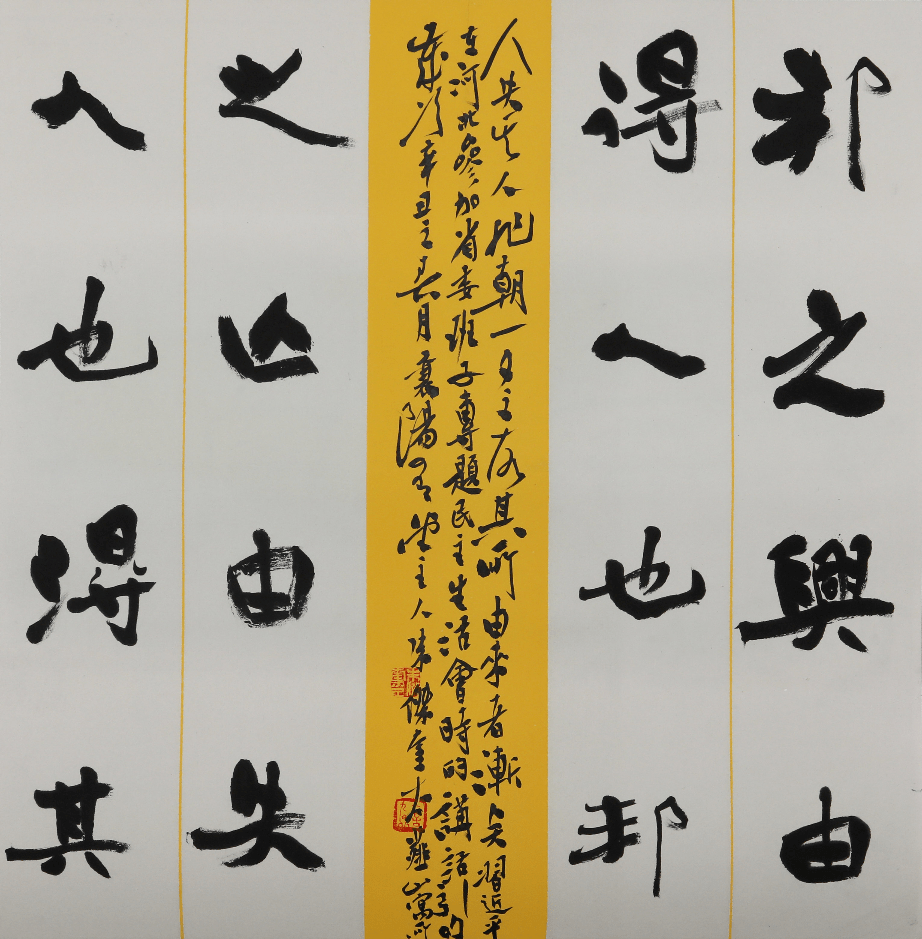 邦之興由
得人也邦
人失其人非朝一夕之故其所由來者漸矣習近平
在河北參加省委班子專題民主生活會時的講話引的
歲次辛丑之月襄陽堂主人傑燕山寓所
之亡由失
人也得其